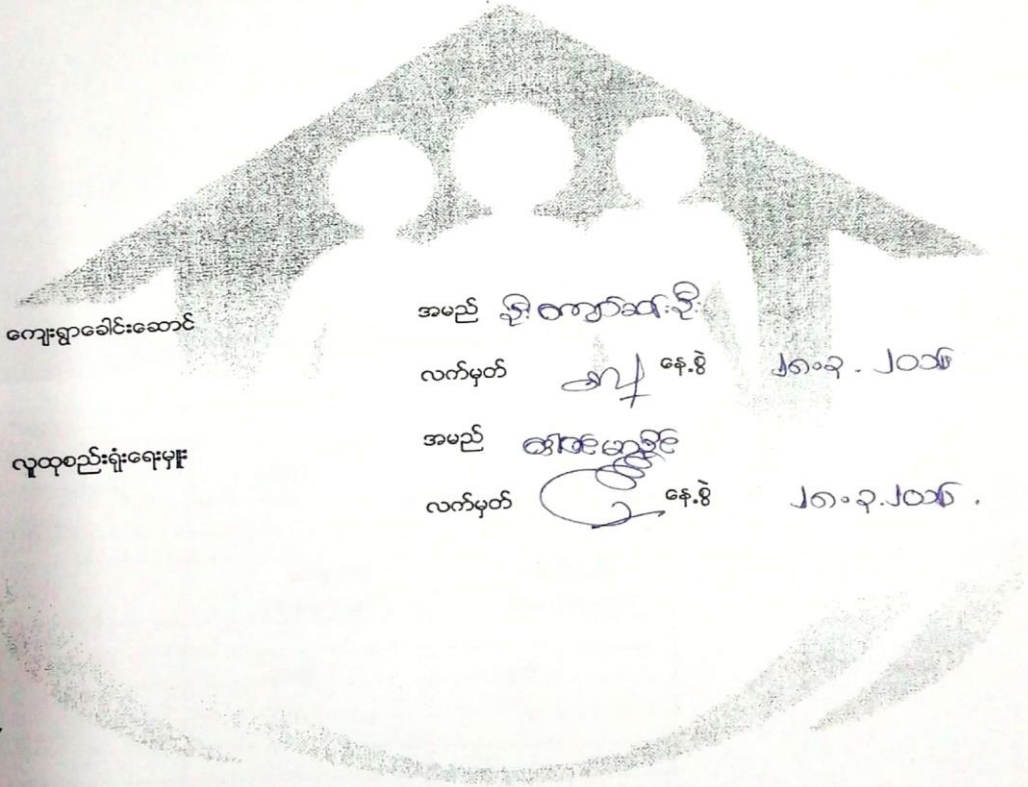 ကျေးရွာခေါင်းဆောင် အမည် ဦးကျော်ဆန်းဦး
လက်မှတ် နေ့စွဲ ၂၈.၃.၂၀၁၆
လူထုစည်းရုံးရေးမှူး အမည်
လက်မှတ် နေ့စွဲ ၂၈.၃.၂၀၁၆.